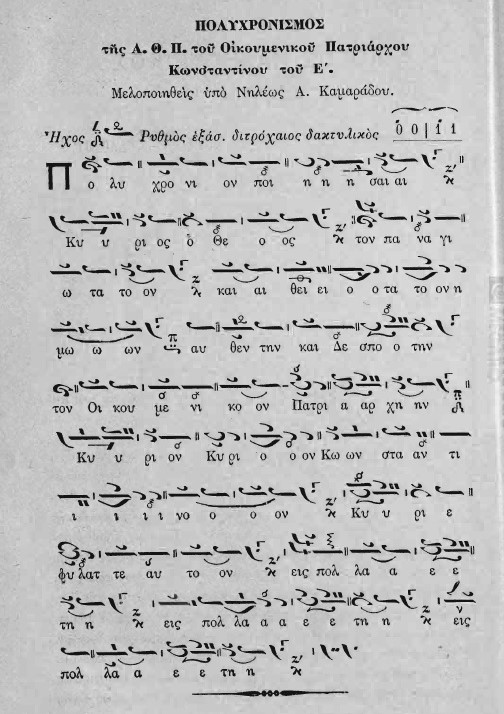 ΠΟΛΥΧΡΟΝΙΣΜΟΣ
τῆς Α. Θ. Π. τοῦ Οἰκουμενικοῦ Πατριάρχου
Κωνσταντίνου τοῦ Ε΄.
Μελοποιηθεὶς ὑπὸ Νηλέως Α. Καμαράδου.
Ἦχος Ῥυθμὸς ἑξάσ. διτρόχαιος δακτυλικὸς
Π ο λυ χρο νι ον ποι η η η σαι αι
Κυ υ ρι ος ὁ Θε ο ος τον πα να γι
ω τα το ον και αι θει ει ο ο τα το ον η
μω ω ων αυ θεν την και Δε σπο ο την
τον Οι κου με νι κο ον Πατρι α αρ χη ην
Κυ υ ρι ον Κυ ρι ο ο ον Κω ων στα αν τι
ι ι ι ι νο ο ο ον Κυ υ ρι ε
φυ λατ τε αυ το ον εις πολ λα α ε ε
τη η εις πολ λα α α ε ε τη η εις
πολ λα α ε ε τη η